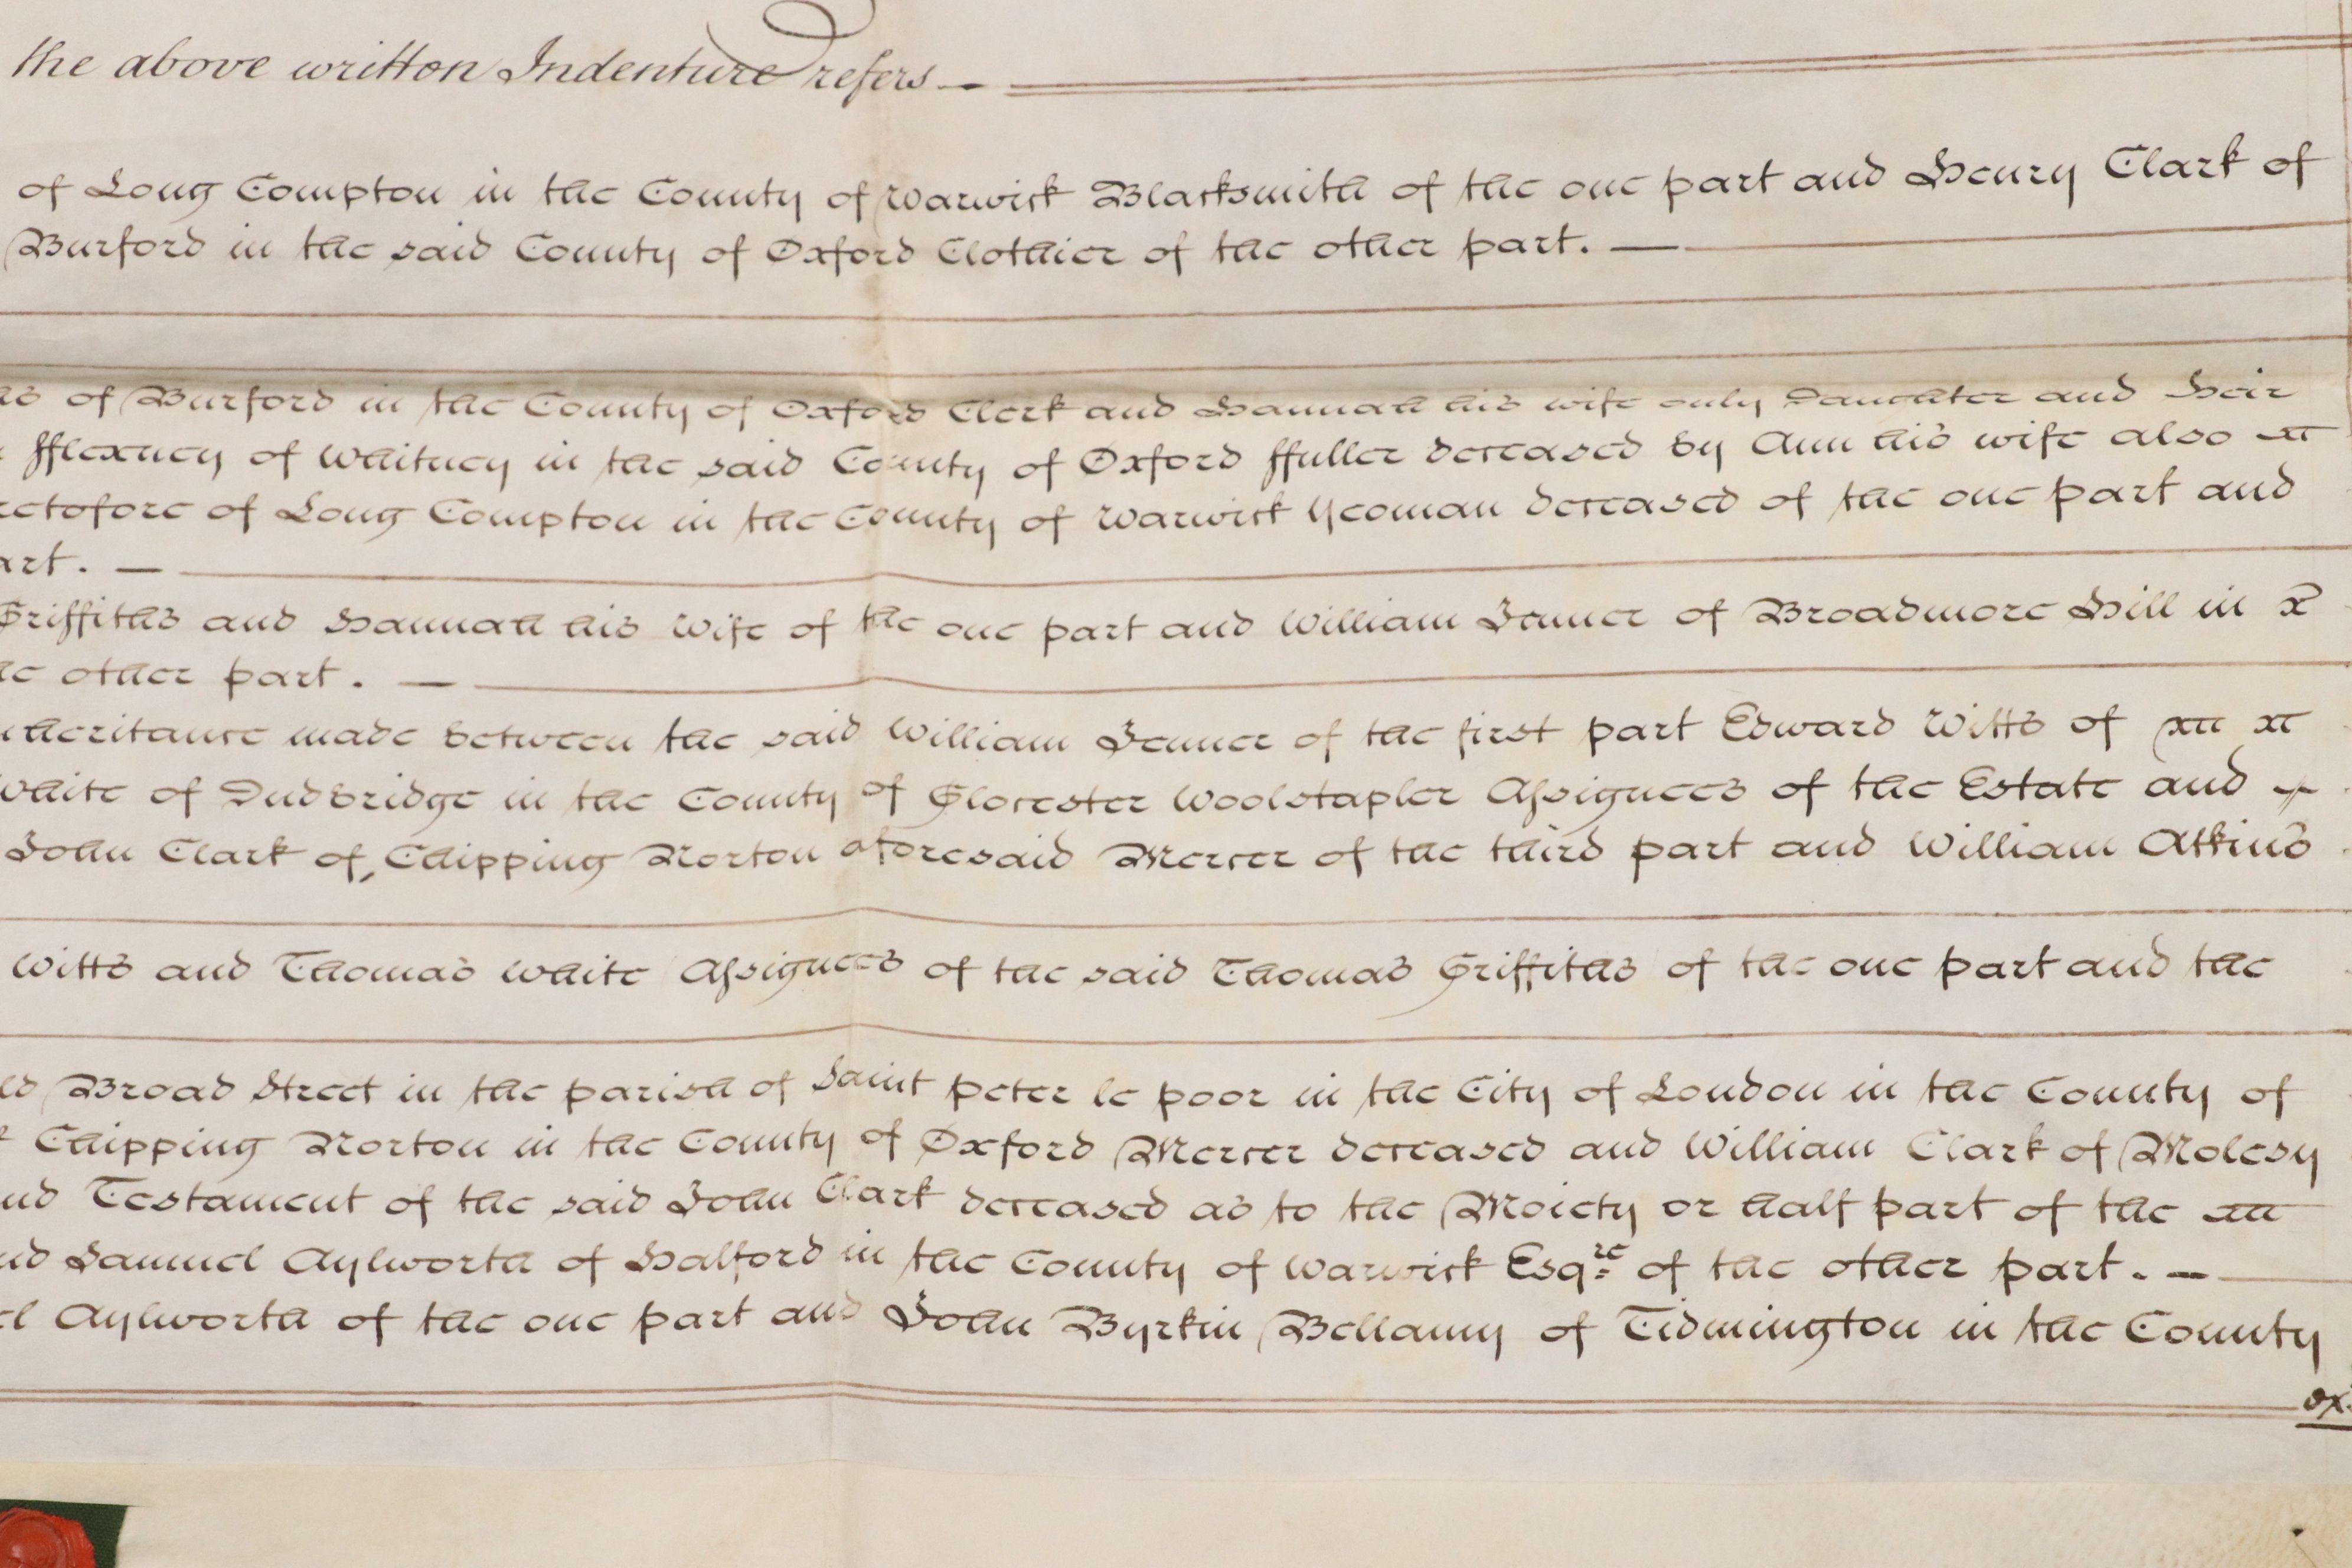 the above written Indenture refers —
of Long Compton in the County of Warwick Blacksmith of the one part and Henry Clark of
Burford in the said County of Oxford Clothier of the other part. —
hs of Burford in the County of Oxford Clerk and Hannah his wife only Daughter and Heir
fflexney of Whitney in the said County of Oxford ffuller deceased by Ann his wife also
retofore of Long Compton in the County of Warwick Yeoman deceased of the one part and
art. —
Griffiths and Hannah his Wife of the one part and William Jenner of Broadmore Hill in
he other part. —
nheritance made between the said William Jenner of the first part Edward Witts of
White of Dudbridge in the County of Glocester Woolstapler Assignees of the Estate and
John Clark of Chipping Norton aforesaid Mercer of the third part and William Atkins
Witts and Thomas White Assignees of the said Thomas Griffiths of the one part and the
ld Broad Street in the parish of Saint peter le poor in the City of London in the County of
Chipping Norton in the County of Oxford Mercer deceased and William Clark of Molesy
nd Testament of the said John Clark deceased as to the Moiety or half part of the
nd Samuel Aylworth of Halford in the County of Warwick Esqre of the other part. —
el Aylworth of the one part and John Byrkin Bellamy of Tidmington in the County